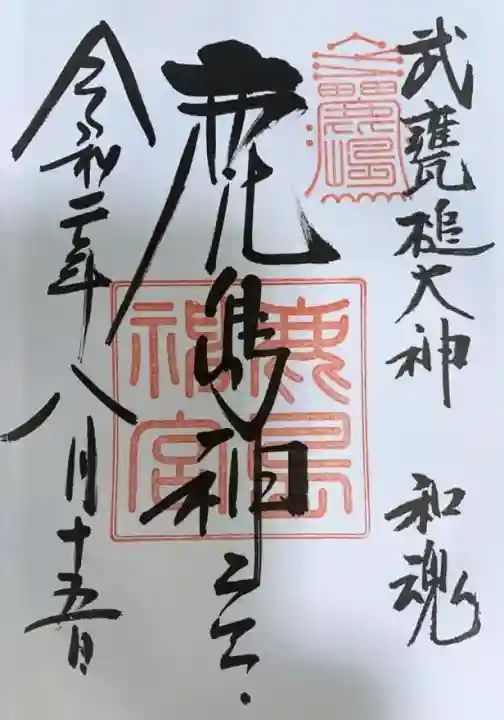 武甕槌大神 和魂
鹿島神宮
令和二年八月十五日
鹿島
神宮